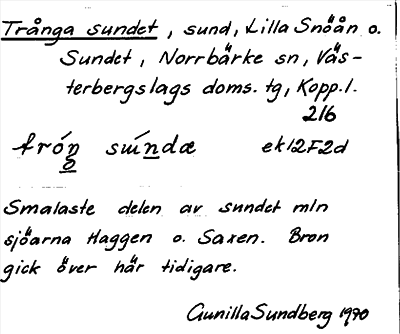 Trånga sundet, sund, Lilla Snöån o.
Sundet, Norrbärke sn, Väs-
terbergslags doms. tg, Kopp. l.
216
ek12F2d
Smalaste delen av sundet mln
sjöarna Haggen o. Saxen. Bron
gick över här tidigare.
Gunilla Sundberg 1970